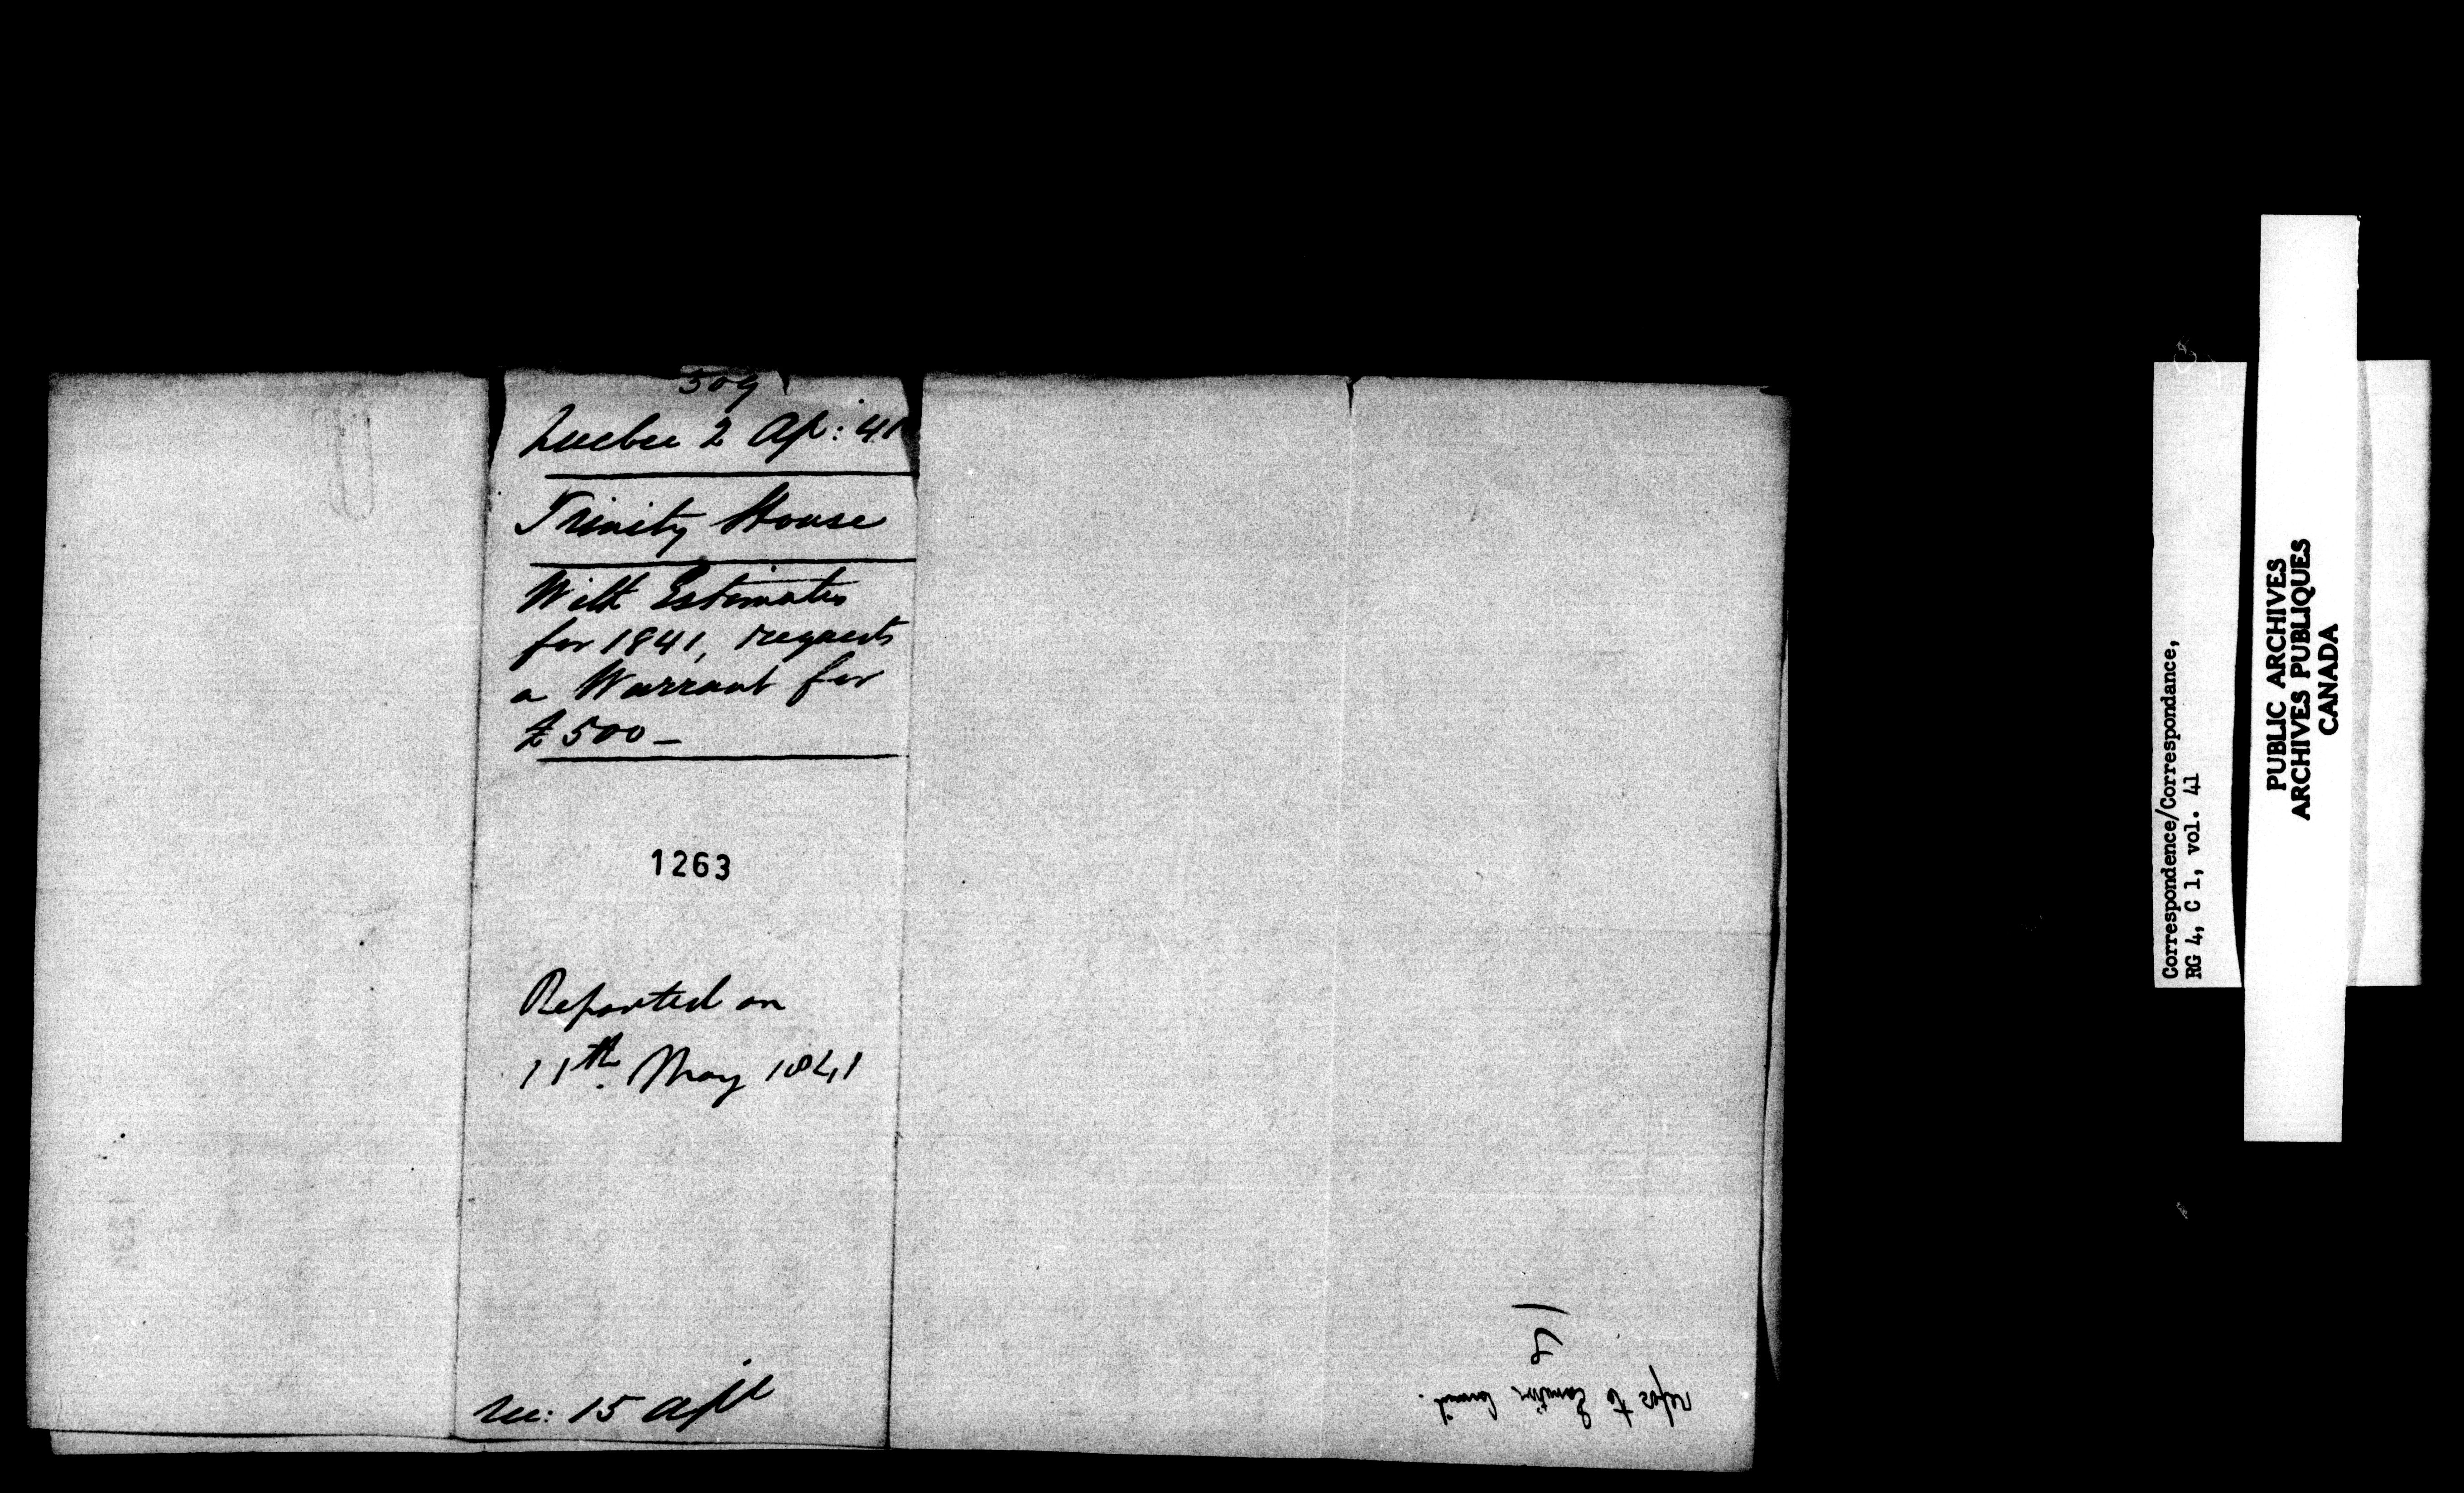 509
Quebec 2 Ap: 41
Trinity House
With Estimates
for 1841, requests
a Warrant for
£500 –
1263
Reported on
11th May 1841
Rec: 15 Apl
refer to Executive Council.
Correspondence/Correspondance,
RG 4, C 1, vol. 41
PUBLIC ARCHIVES
ARCHIVES PUBLIQUES
CANADA